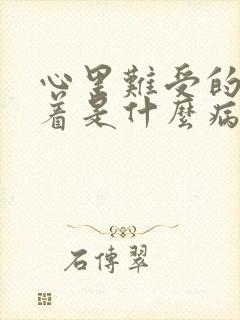 心里難受的
着是什麼病
石傳翠